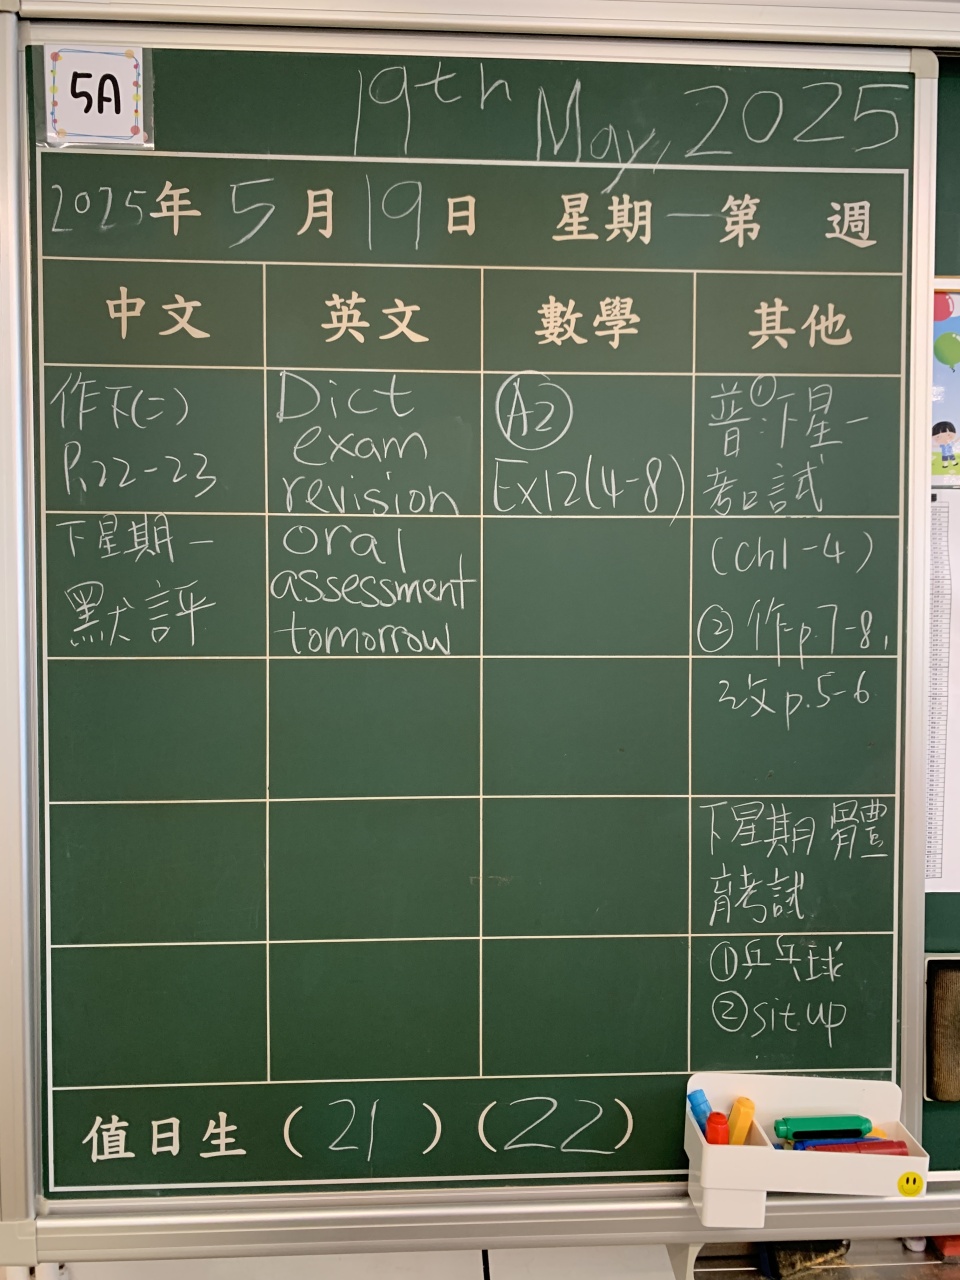 5A
19th May, 2025
2025年5月19日 星期一 第 週
中文
英文
數學
其他
作下(二)
P.22-23
下星期一
默評
Dict
exam
revision
oral
assessment
tomorrow
A2
Ex12(4-8)
普:①下星一
考口試
(ch1-4)
②作p.7-8,
改p.5-6
下星期體
育考試
①乒乓球
②sit up
值日生(21)(22)